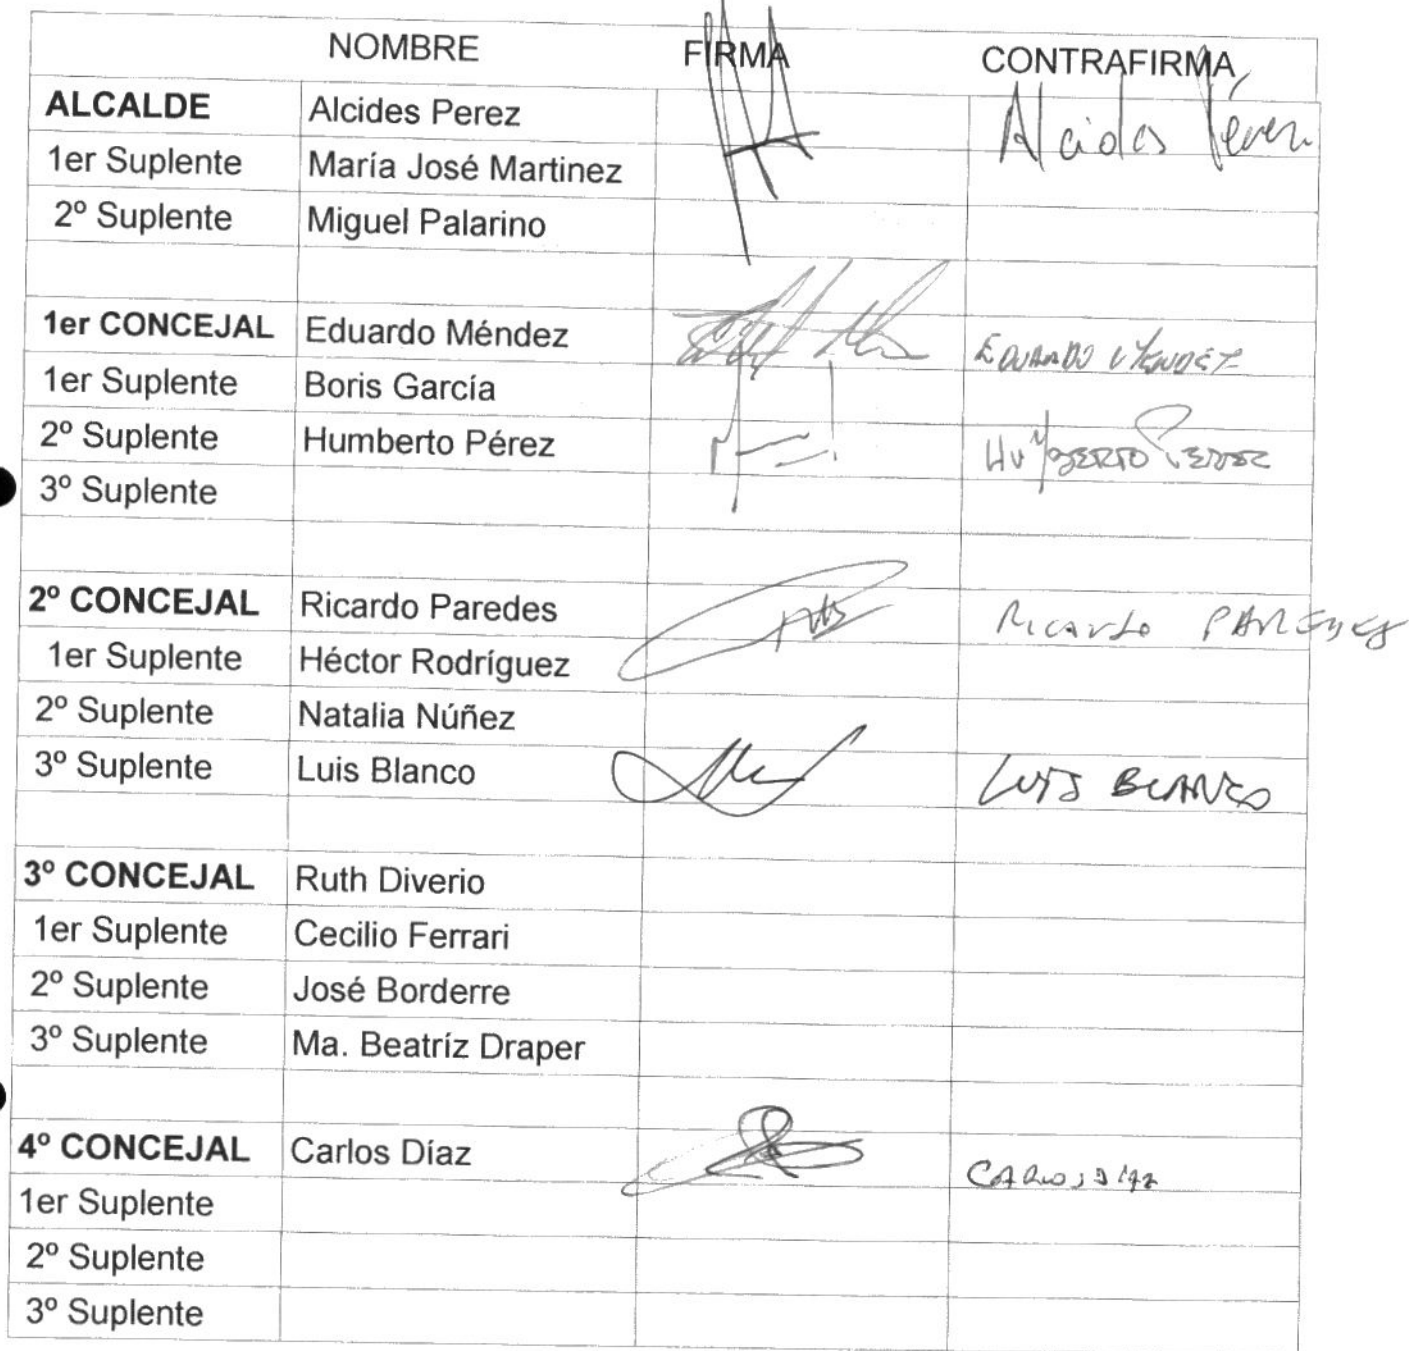 NOMBRE FIRMA CONTRAFIRMA
ALCALDE Alcides Perez Alcides Pérez
1er Suplente María José Martinez
2º Suplente Miguel Palarino
1er CONCEJAL Eduardo Méndez EDUARDO MENDEZ
1er Suplente Boris García
2º Suplente Humberto Pérez HUMBERTO PEREZ
3º Suplente
2º CONCEJAL Ricardo Paredes Ricardo PAREDES
1er Suplente Héctor Rodríguez
2º Suplente Natalia Núñez
3º Suplente Luis Blanco LUIS BLANCO
3º CONCEJAL Ruth Diverio
1er Suplente Cecilio Ferrari
2º Suplente José Borderre
3º Suplente Ma. Beatríz Draper
4º CONCEJAL Carlos Díaz CARLOS DÍAZ
1er Suplente
2º Suplente
3º Suplente